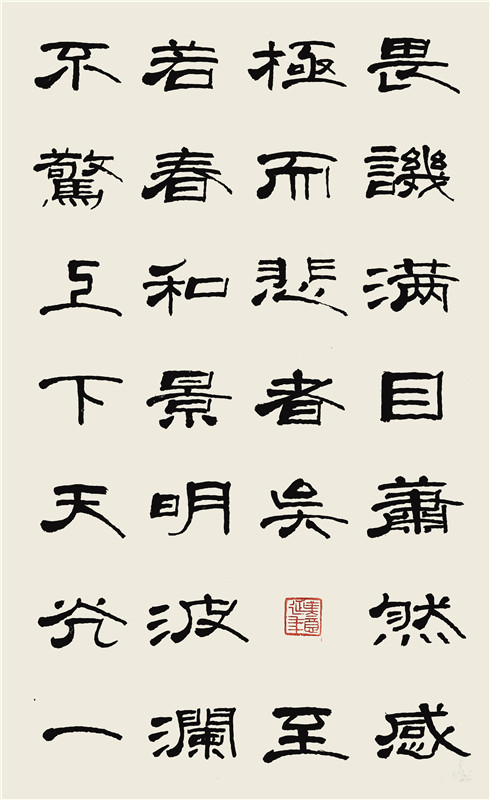 畏譏滿目蕭然感
極而悲者矣至
若春和景明波瀾
不驚上下天光一
美意延年